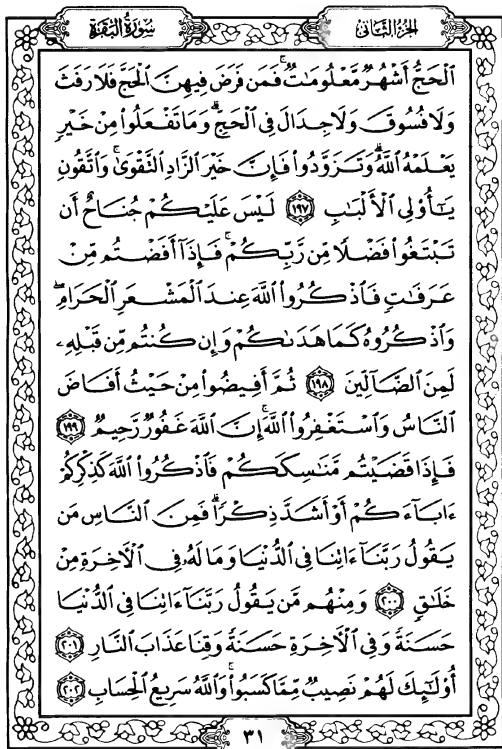 سُورَةُ البَقَرَةِ
الجزء الثاني
ٱلْحَجُّ أَشْهُرٌ مَّعْلُومَٰتٌ ۚ فَمَن فَرَضَ فِيهِنَّ ٱلْحَجَّ فَلَا رَفَثَ
وَلَا فُسُوقَ وَلَا جِدَالَ فِى ٱلْحَجِّ ۗ وَمَا تَفْعَلُوا۟ مِنْ خَيْرٍ
يَعْلَمْهُ ٱللَّهُ ۗ وَتَزَوَّدُوا۟ فَإِنَّ خَيْرَ ٱلزَّادِ ٱلتَّقْوَىٰ ۚ وَٱتَّقُونِ
يَٰٓأُو۟لِى ٱلْأَلْبَٰبِ ١٩٧ لَيْسَ عَلَيْكُمْ جُنَاحٌ أَن
تَبْتَغُوا۟ فَضْلًا مِّن رَّبِّكُمْ ۚ فَإِذَآ أَفَضْتُم مِّنْ
عَرَفَٰتٍ فَٱذْكُرُوا۟ ٱللَّهَ عِندَ ٱلْمَشْعَرِ ٱلْحَرَامِ ۖ
وَٱذْكُرُوهُ كَمَا هَدَىٰكُمْ وَإِن كُنتُم مِّن قَبْلِهِۦ
لَمِنَ ٱلضَّآلِّينَ ١٩٨ ثُمَّ أَفِيضُوا۟ مِنْ حَيْثُ أَفَاضَ
ٱلنَّاسُ وَٱسْتَغْفِرُوا۟ ٱللَّهَ ۚ إِنَّ ٱللَّهَ غَفُورٌ رَّحِيمٌ ١٩٩
فَإِذَا قَضَيْتُم مَّنَٰسِكَكُمْ فَٱذْكُرُوا۟ ٱللَّهَ كَذِكْرِكُمْ
ءَابَآءَكُمْ أَوْ أَشَدَّ ذِكْرًا ۗ فَمِنَ ٱلنَّاسِ مَن
يَقُولُ رَبَّنَآ ءَاتِنَا فِى ٱلدُّنْيَا وَمَا لَهُۥ فِى ٱلْأَخِرَةِ مِنْ
خَلَٰقٍ ٢٠٠ وَمِنْهُم مَّن يَقُولُ رَبَّنَآ ءَاتِنَا فِى ٱلدُّنْيَا
حَسَنَةً وَفِى ٱلْأَخِرَةِ حَسَنَةً وَقِنَا عَذَابَ ٱلنَّارِ ٢٠١
أُو۟لَٰٓئِكَ لَهُمْ نَصِيبٌ مِّمَّا كَسَبُوا۟ ۚ وَٱللَّهُ سَرِيعُ ٱلْحِسَابِ ٢٠٢
٣١